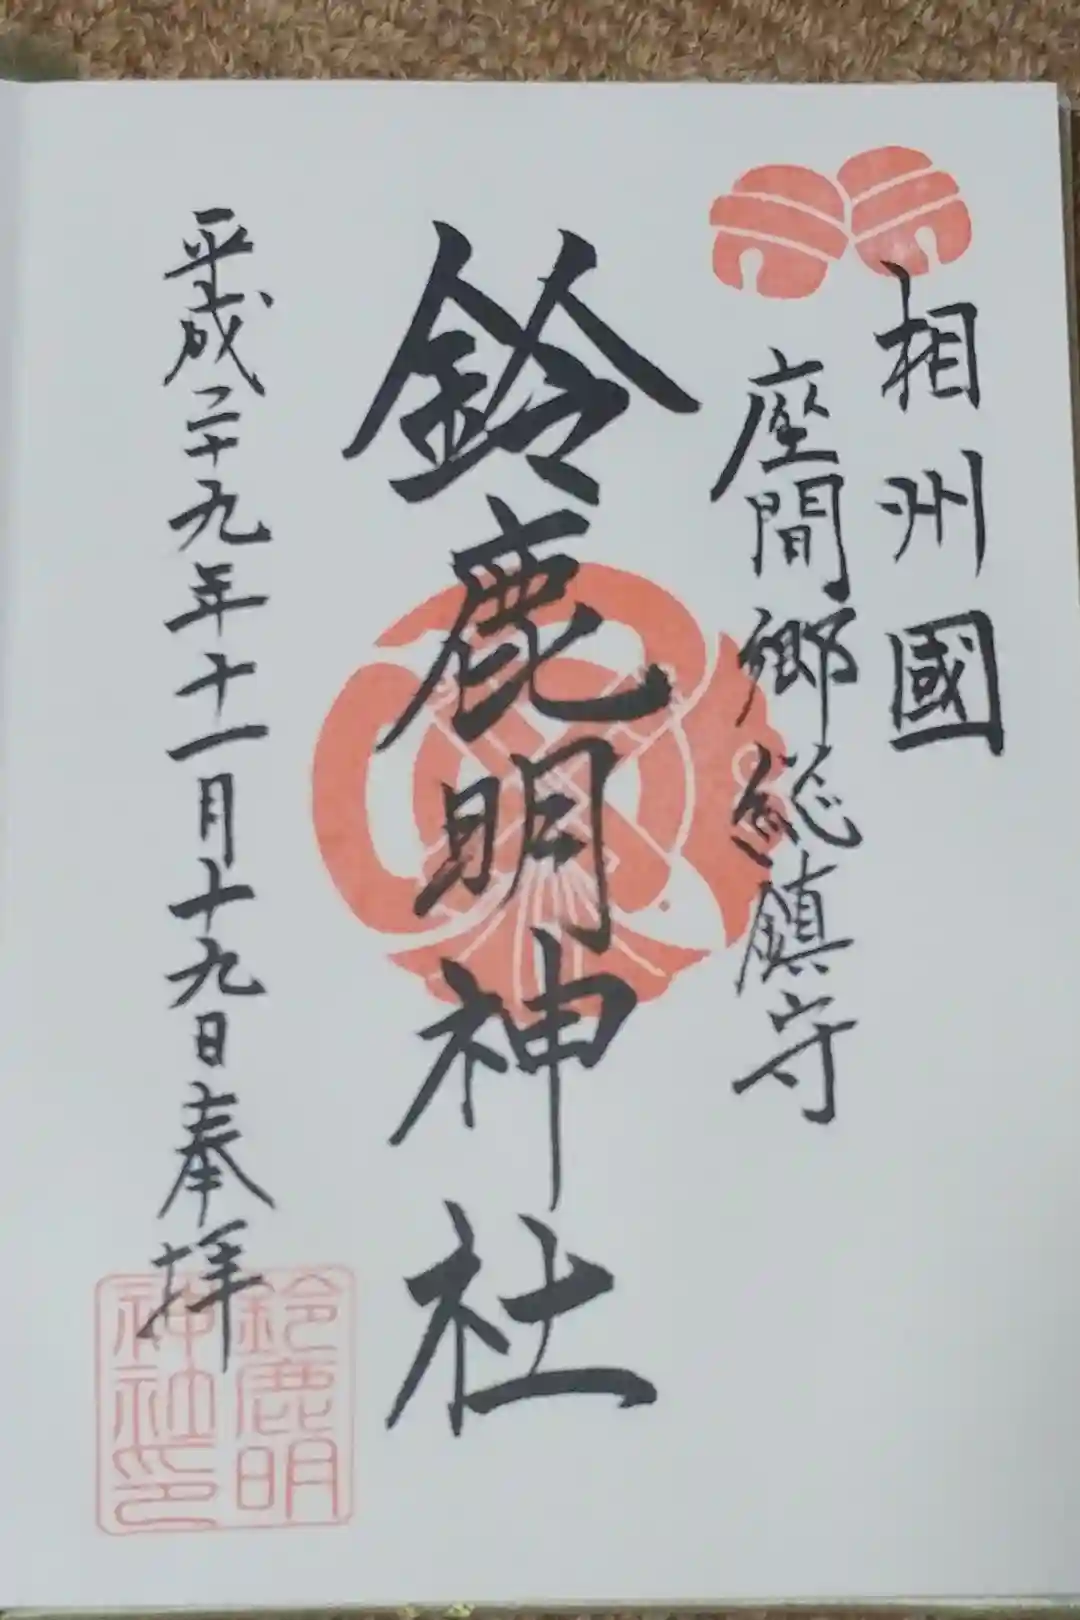 相州國
座間郷総鎮守
鈴鹿明神社
平成二十九年十一月十九日奉拝
鈴鹿明
神社印